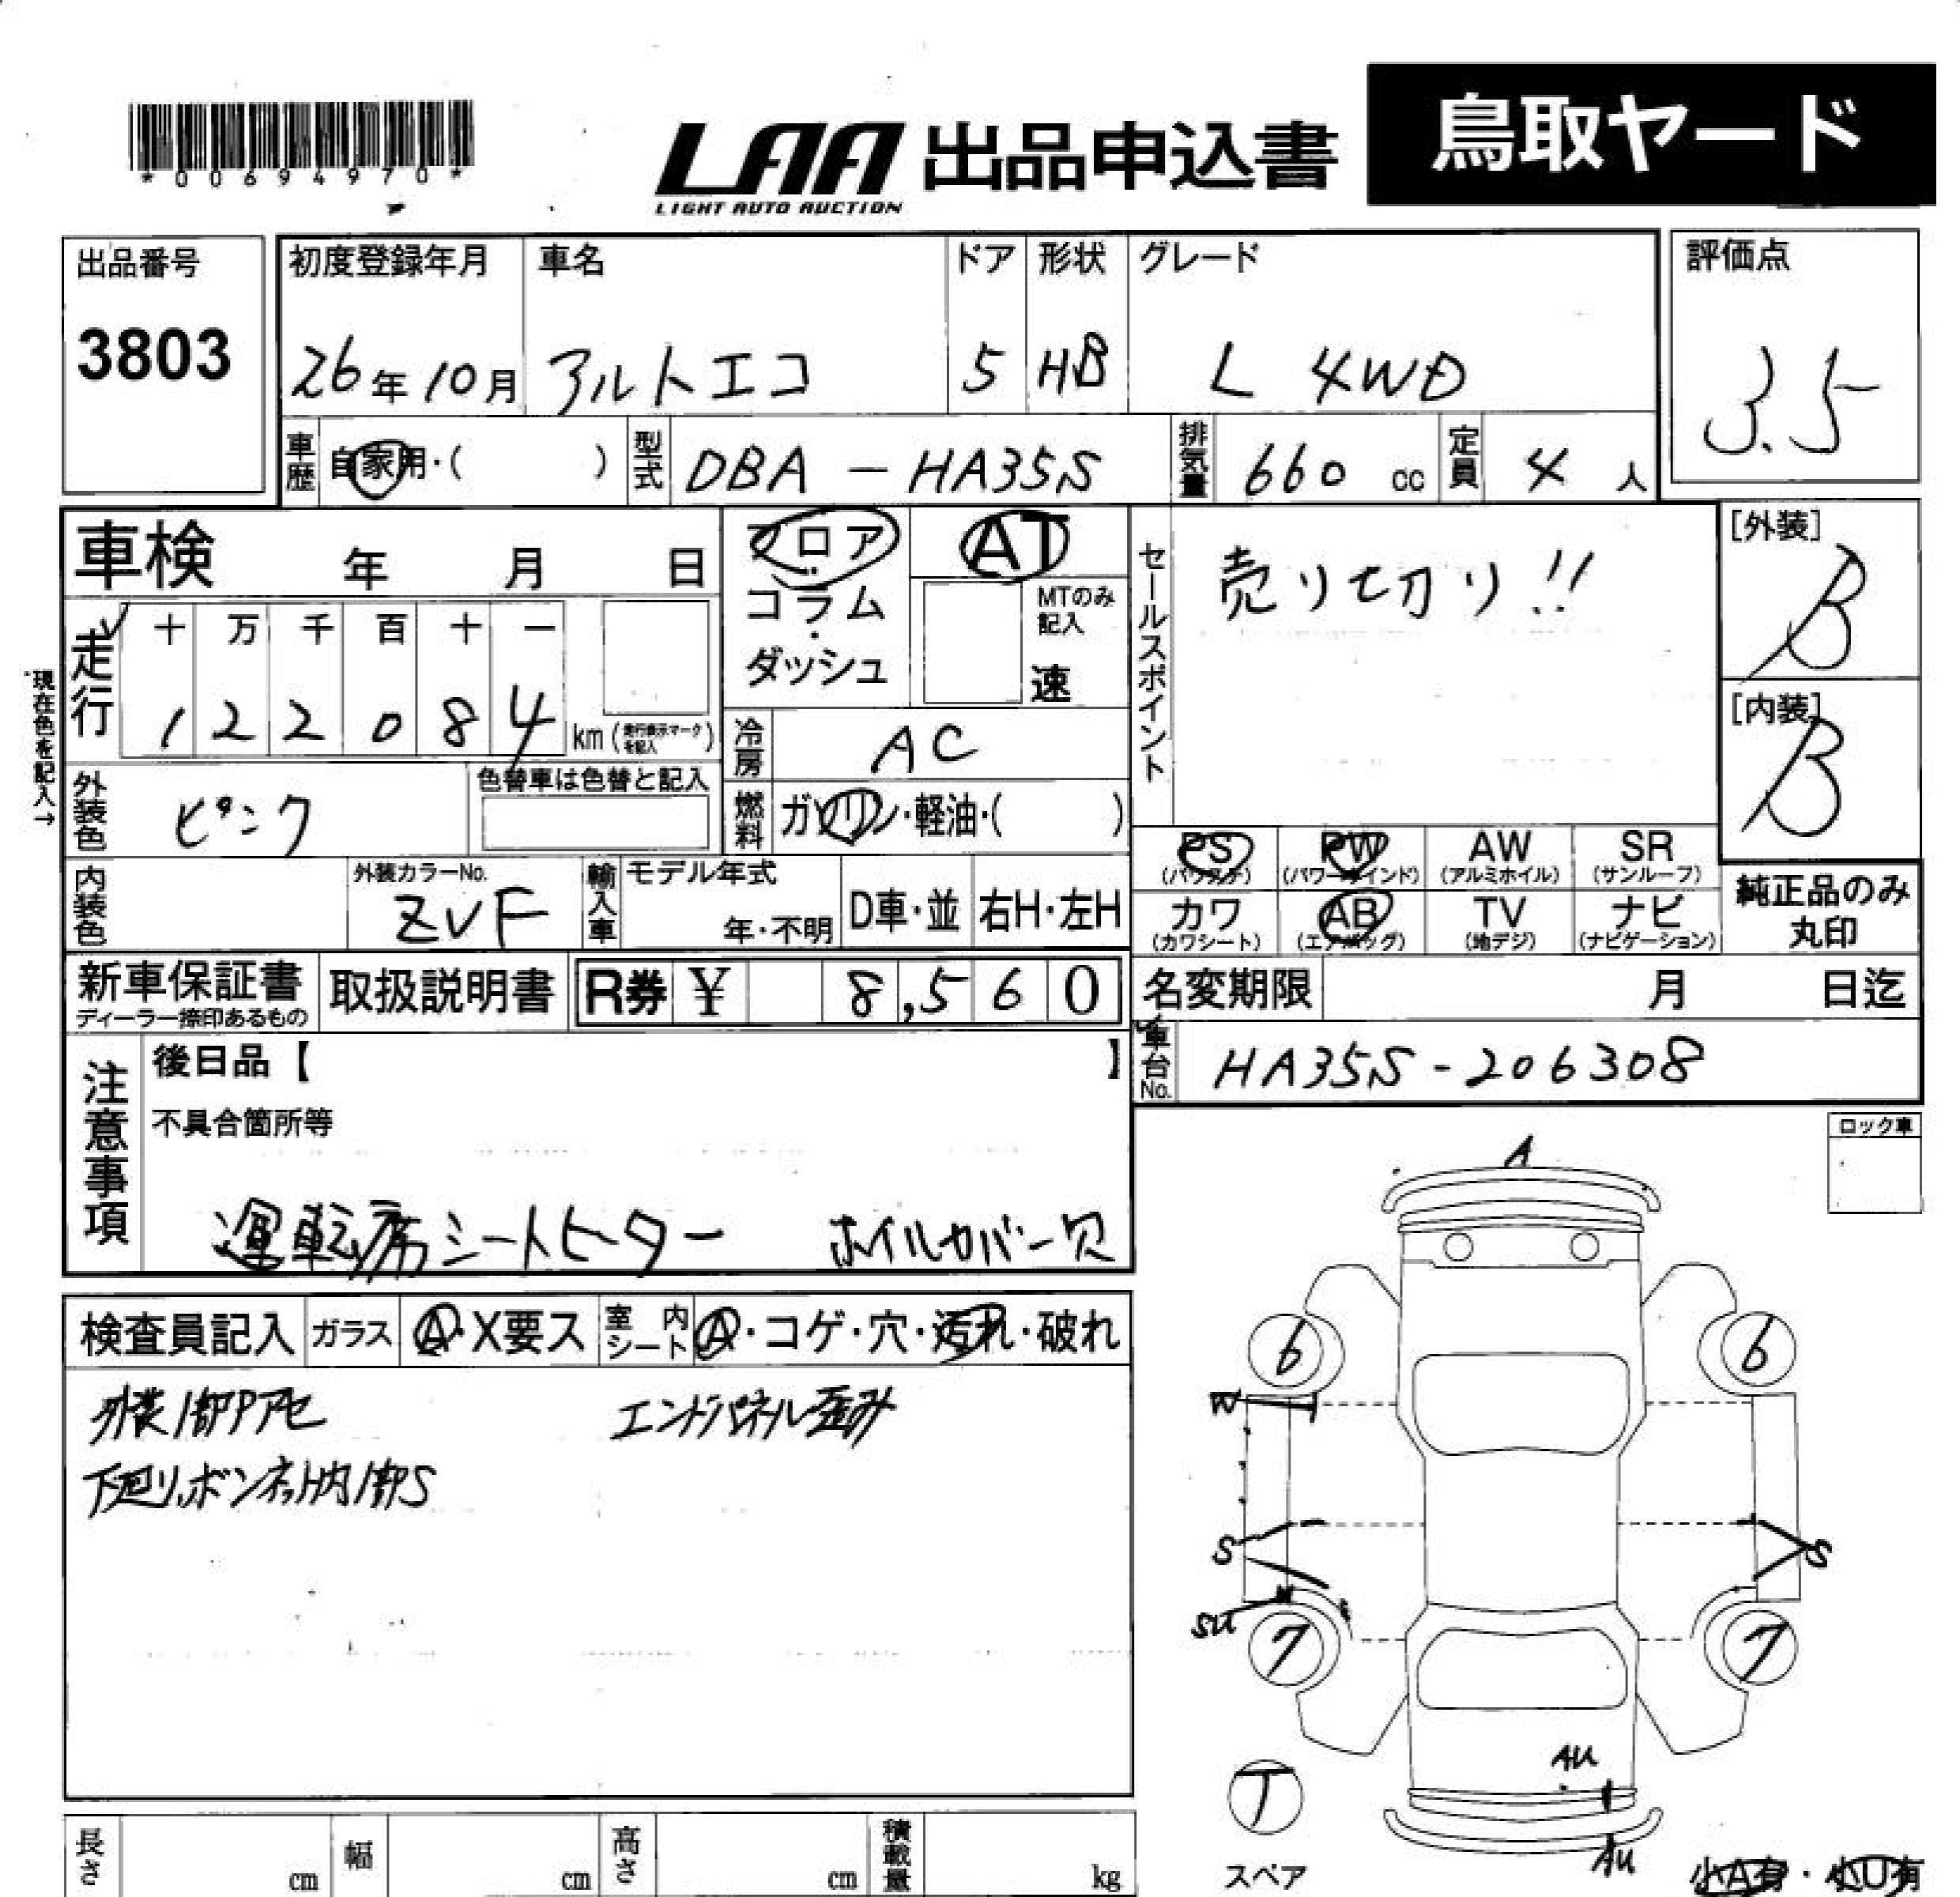 *00694970*
LAA 出品申込書 鳥取ヤード
LIGHT AUTO AUCTION
出品番号 初度登録年月 車名 ドア 形状 グレード 評価点
3803 26年10月 アルトエコ 5 HB L 4WD 3.5
車歴 自家用・( ) 型式 DBA-HA35S 排気量 660 cc 定員 4 人
車検 年 月 日 フロア AT セールスポイント 売り切り!! [外装]
B
コラム・ダッシュ MTのみ記入 速
走行 十 万 千 百 十 一
1 2 2 0 8 4 km (走行表示マークを記入) [内装]
B
現在色を記入→
冷房 AC
外装色 ピンク 色替車は色替と記入
燃料 ガソリン・軽油・( )
PS PW AW SR
(パワステ) (パワーウインド) (アルミホイル) (サンルーフ)
内装色 外装カラーNo. ZVF 輸入車 モデル年式 年・不明 D車・並 右H・左H
カワ AB TV ナビ
(カワシート) (エアバッグ) (地デジ) (ナビゲーション)
純正品のみ
丸印
新車保証書 取扱説明書 R券 ¥ 8,560 名変期限 月 日迄
ディーラー捺印あるもの
車台No. HA35S-206308
注意事項 後日品【 】
不具合箇所等
運転席シートヒーター ホイルカバー欠
ロック車
検査員記入 ガラス A・X要ス 室内シート A・コゲ・穴・汚れ・破れ
外装1部Pアセ エンドパネル歪み
下廻り、ボンネット内1部S
A
6 6
W
S S
SU
7 7
AU
T
AU
スペア 小A有・小U有
長さ cm 幅 cm 高さ cm 積載量 kg